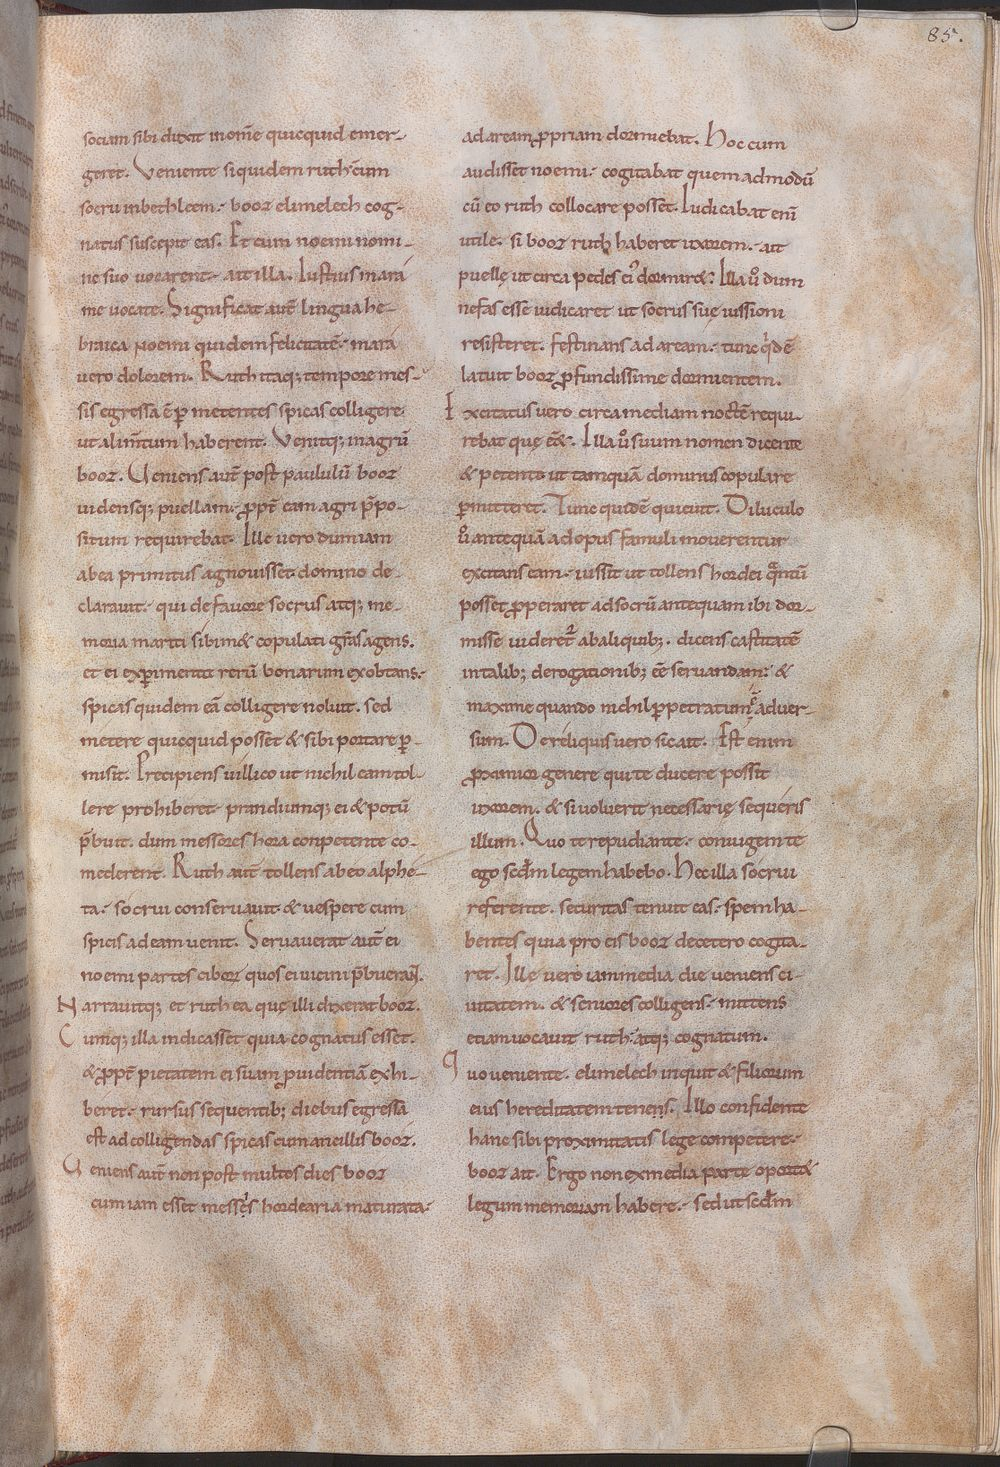 85.
sociam sibi duxit in om̅e quicquid emer-
geret. Veniente siquidem ruth cum
socru in bethleem. booz elimelech cog-
natus suscepit eas. Et cum noemi nomi-
ne suo vocarent. ait illa. Iustius mara
me vocate. Significat aut̅ lingua he-
braica noemi quidem felicitate̅. mara
vero dolorem. Ruth itaq; tempore mes-
sis egressa e̅ p̱ metentes spicas colligere.
ut alim̅tum haberent. Venitq; in agru̅
booz. Veniens aut̅ post paululu̅ booz
vidensq; puellam. p̱pt̅ eam agri p̅po-
situm requirebat. Ille vero dum iam
ab ea primitus agnovisset domino de-
claravit. qui de favore socrus atq; me-
moria mariti sibim& copulati gr̅as agens.
et ei exp̱imentu reru̅ bonarum exobtans.
spicas quidem ea̅ colligere noluit. sed
metere quicquid posset & sibi portare p̱-
misit. Precipiens villico ut nichil eam tol-
lere prohiberet. prandiumq; ei & potu̅
p̅buit. dum messores hora conpetente co-
mederent. Ruth aut̅ tollens ab eo alphe-
ta. socrui conservavit & vespere cum
spicis ad eam venit. Servaverat aut̅ ei
noemi partes ciborꝝ quos ei vicini p̅buerant.
Narravitq; et ruth ea quę illi dixerat booz.
Cumq; illa indicasset quia cognatus esset.
& p̱pt̅ pietatem ei suam p̱videntia̅ exhi-
beret. rursus sequentib; diebus egressa
est ad colligendas spicas cum ancillis booz.
Veniens aut̅ non post multos dies booz
cum iam esset messis hordearia maturata.
ad aream p̱priam dormiebat. Hoc cum
audisset noemi. cogitabat quemadmodu̅
cu̅ eo ruth collocare posset. Iudicabat eni̅
utile. si booz ruth haberet uxorem. ait
puellę ut circa pedes ei᾿ dormir&. Illa ů dum
nefas esse iudicaret ut socrus suę iussioni
resisteret. festinans ad aream. tunc qide̅
latuit booz p̱fundissime dormientem.
Excitatus vero circa mediam nocte̅ requi-
rebat quę e̅&. Illa ů suum nomen dicente
& petente ut tamqua̅ dominus copulare
p̱mitteret. Tunc quide̅ quievit. Diluculo
ů antequa̅ ad opus famuli moverentur
excitans eam. iussit ut tollens hordei qantu̅
posset p̱peraret ad socru̅ antequam ibi dor-
misse videret᷑ ab aliquib;. dicens castitate̅
in talib; derogationib; ee̅ servandam. &
maxime quando nichil p̱petratum e̅ adver-
sum. De reliquis vero sic ait. Est enim
p̱ximior genere qui te ducere possit
uxorem. & si voluerit necessarię sequeris
illum. Quo te repudiante. coniugem te
ego scd̅m legem habebo. Hec illa socrui
referente. securitas tenuit eas. spem ha-
bentis quia pro eis booz decetero cogita-
ret. Illę vero iam media die veniens ci-
vitatem. & seniores colligens. mittens
etiam vocavit ruth. atq; cognatum.
Quo veniente. elimelech inquit & filiorum
eius hereditatem tenens. Illo confidente
hanc sibi proximitatis lege competere.
booz ait. Ergo non ex media parte oport&
legum memoriam habere. sed ut scd̅m